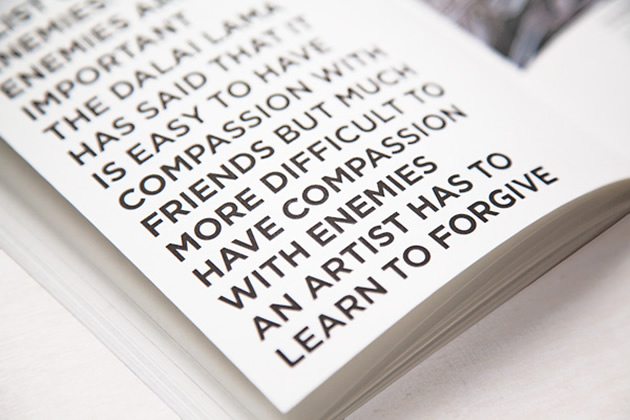 ENEMIES
ENEMIES
IMPORTANT
THE DALAI LAMA
HAS SAID THAT IT
IS EASY TO HAVE
COMPASSION WITH
FRIENDS BUT MUCH
MORE DIFFICULT TO
HAVE COMPASSION
WITH ENEMIES
AN ARTIST HAS TO
LEARN TO FORGIVE